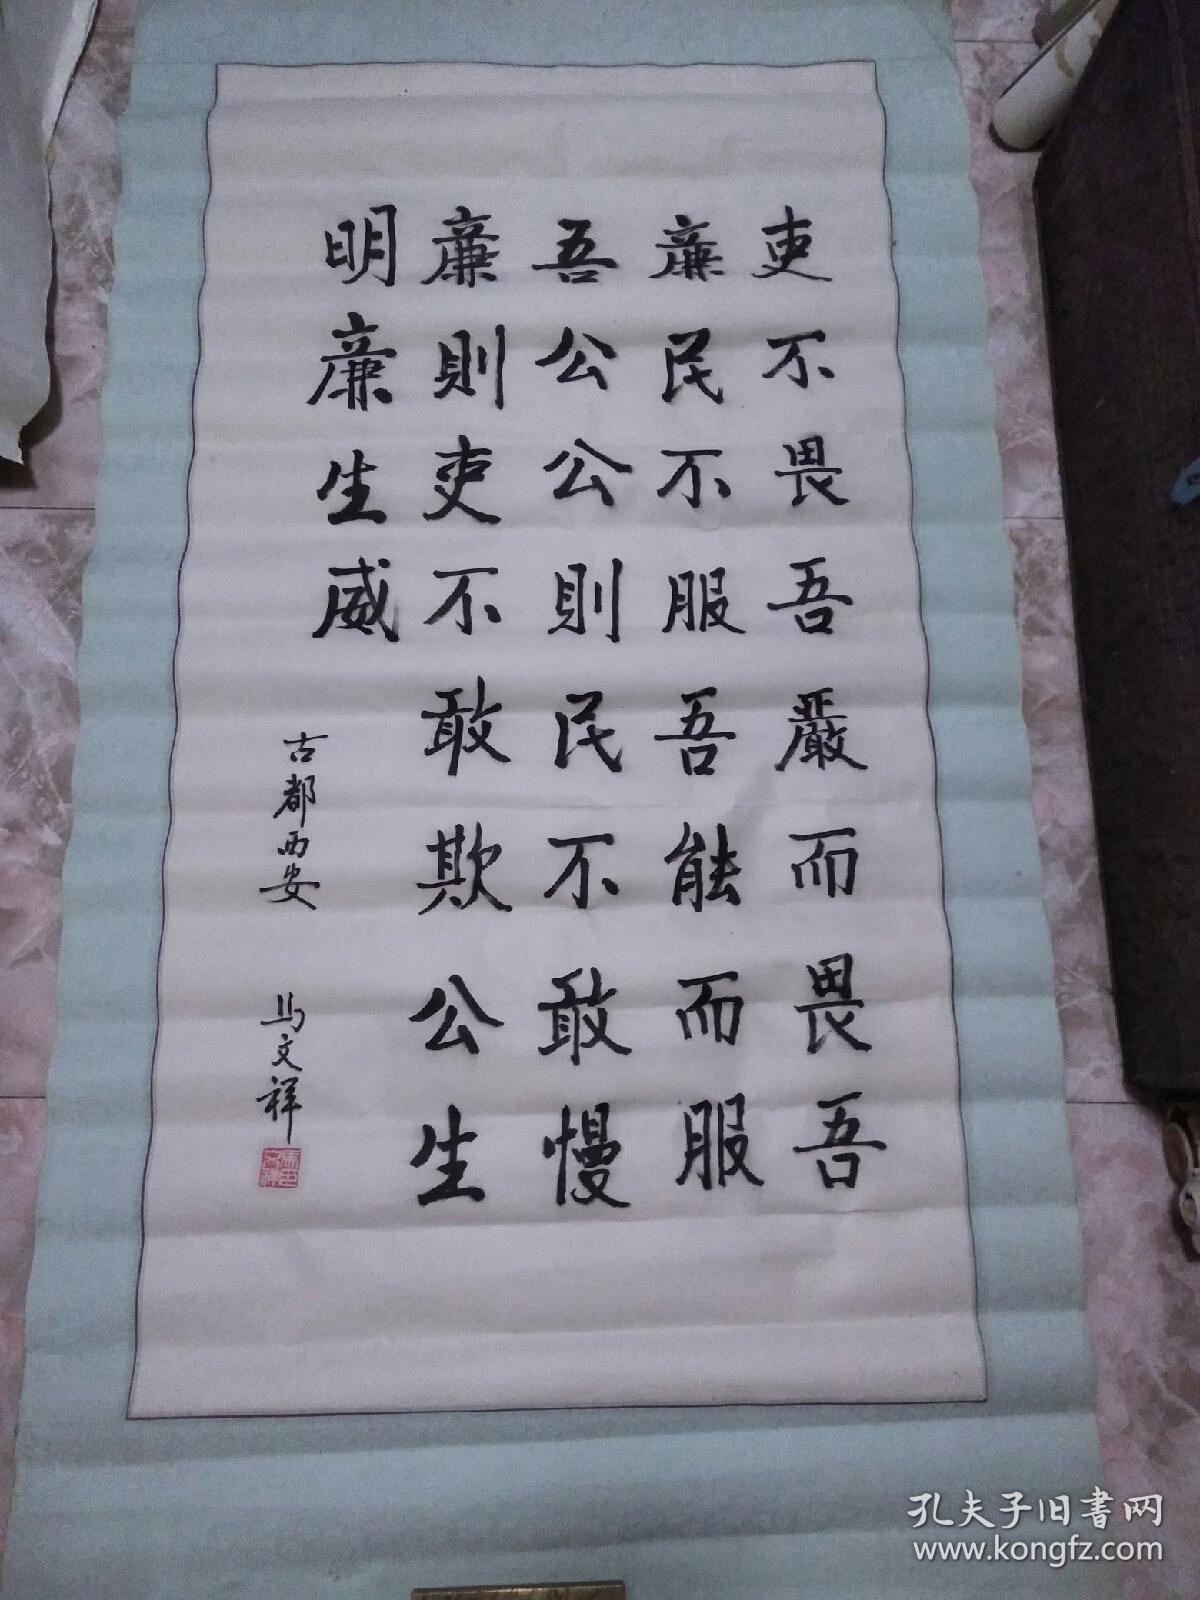 吏不畏吾嚴而畏吾
廉民不服吾能而服
吾公公則民不敢慢
廉則吏不敢欺公生
明廉生威
古都西安 马文祥
孔夫子旧书网
www.kongfz.com